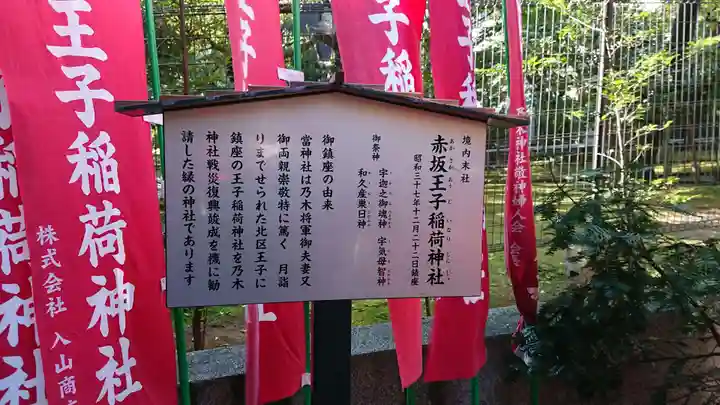 境内末社
赤坂王子稲荷神社
あかさかおうじいなりじんじゃ
昭和三十七年十二月二十二日鎮座
御祭神
宇迦之御魂神 宇気母智神
和久産巣日神
御鎮座の由来
當神社は乃木将軍御夫妻又
御両親崇敬特に篤く 月詣
りまでせられた北区王子に
鎮座の王子稲荷神社を乃木
神社戦災復興竣成を機に勧
請した縁の神社であります
王子稲荷神社
株式会社 入山商
王子稲
王子稲
稲荷神社
木神社敬神婦人会 会